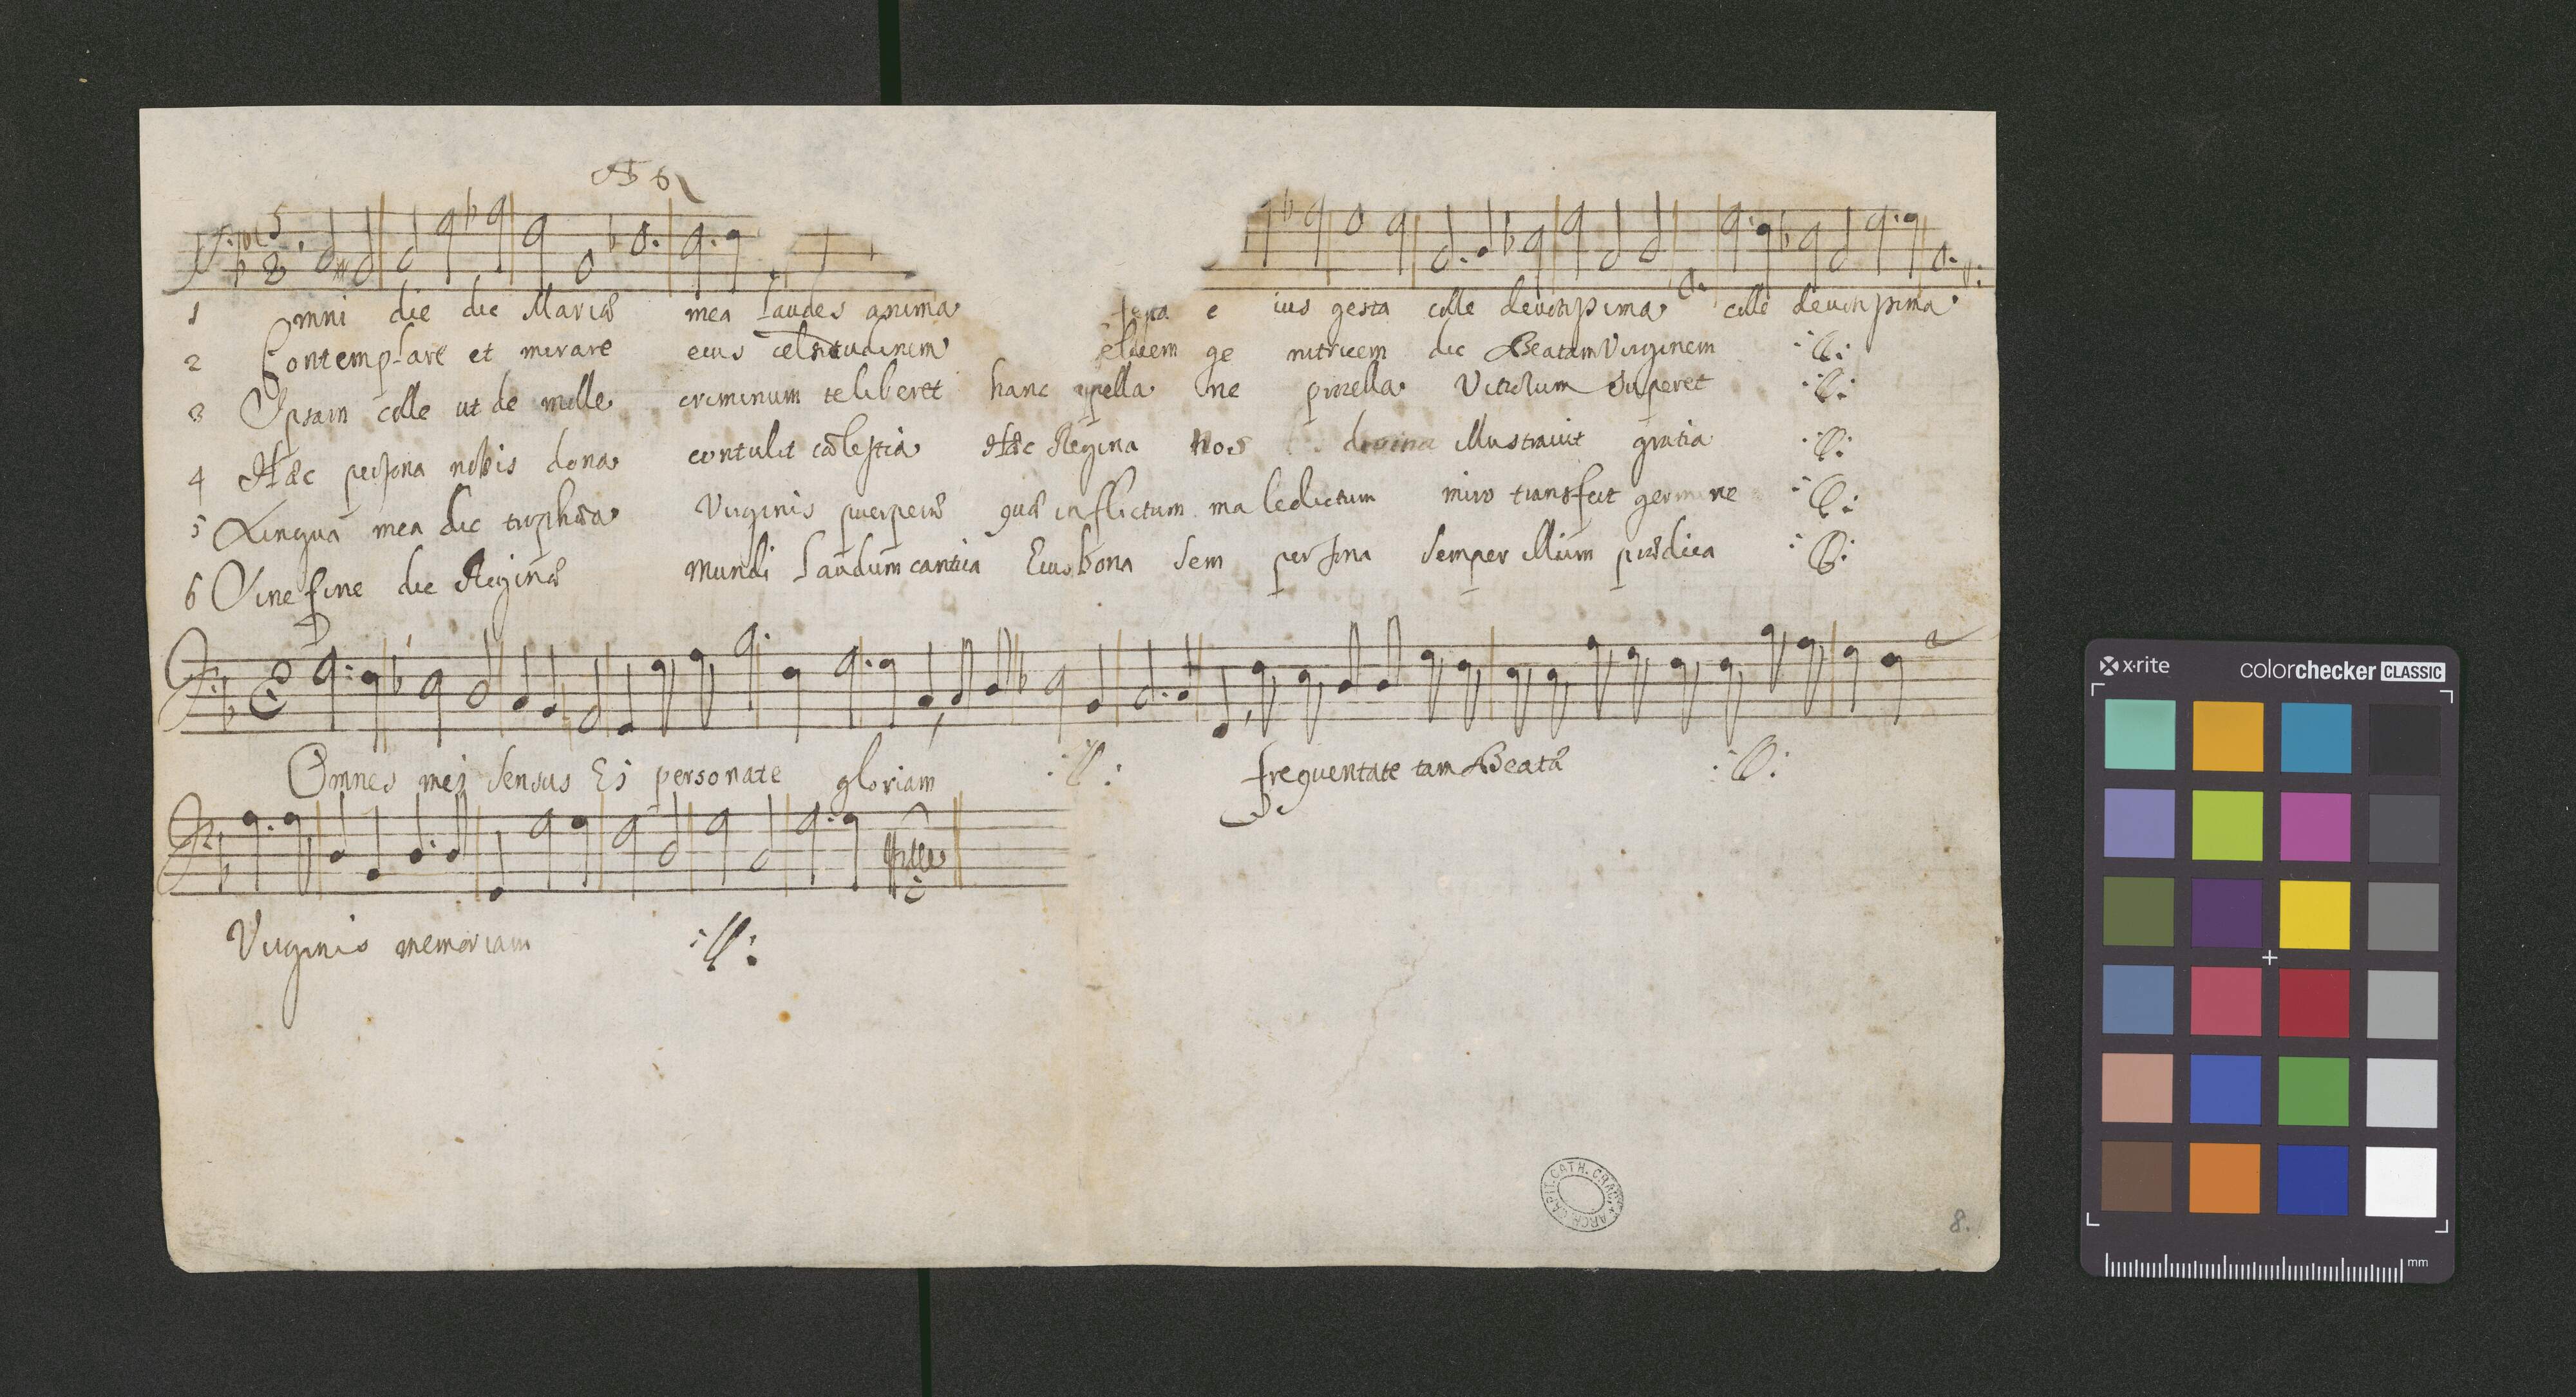 A 6
1 Omni die dic Mariæ mea laudes anima festa eius gesta cole devotissima cole devotissima
2 Contemplare et mirare eius celsitudinem felicem genitricem dic Beatam Virginem :||:
3 Ipsam cole ut de mole criminum te liberet hanc apella ne procella Vitiorum superet :||:
4 Hæc persona nobis dona contulit cælestia Hæc Regina nos divina illustravit gratia :||:
5 Lingua mea dic trophæa Virginis puerperæ quæ inflictum maledictum miro transfert germine :||:
6 Sine fine dic Reginæ Mundi laudum cantica Eius bona semper sona semper illium prædica :||:
Omnes mei sensus Ei personate gloriam :||: frequentate tam Beatæ :||:
Virginis memoriam :||:
ARCH. CAPIT. CATH. CRAC.
8.
x-rite
colorchecker CLASSIC
mm